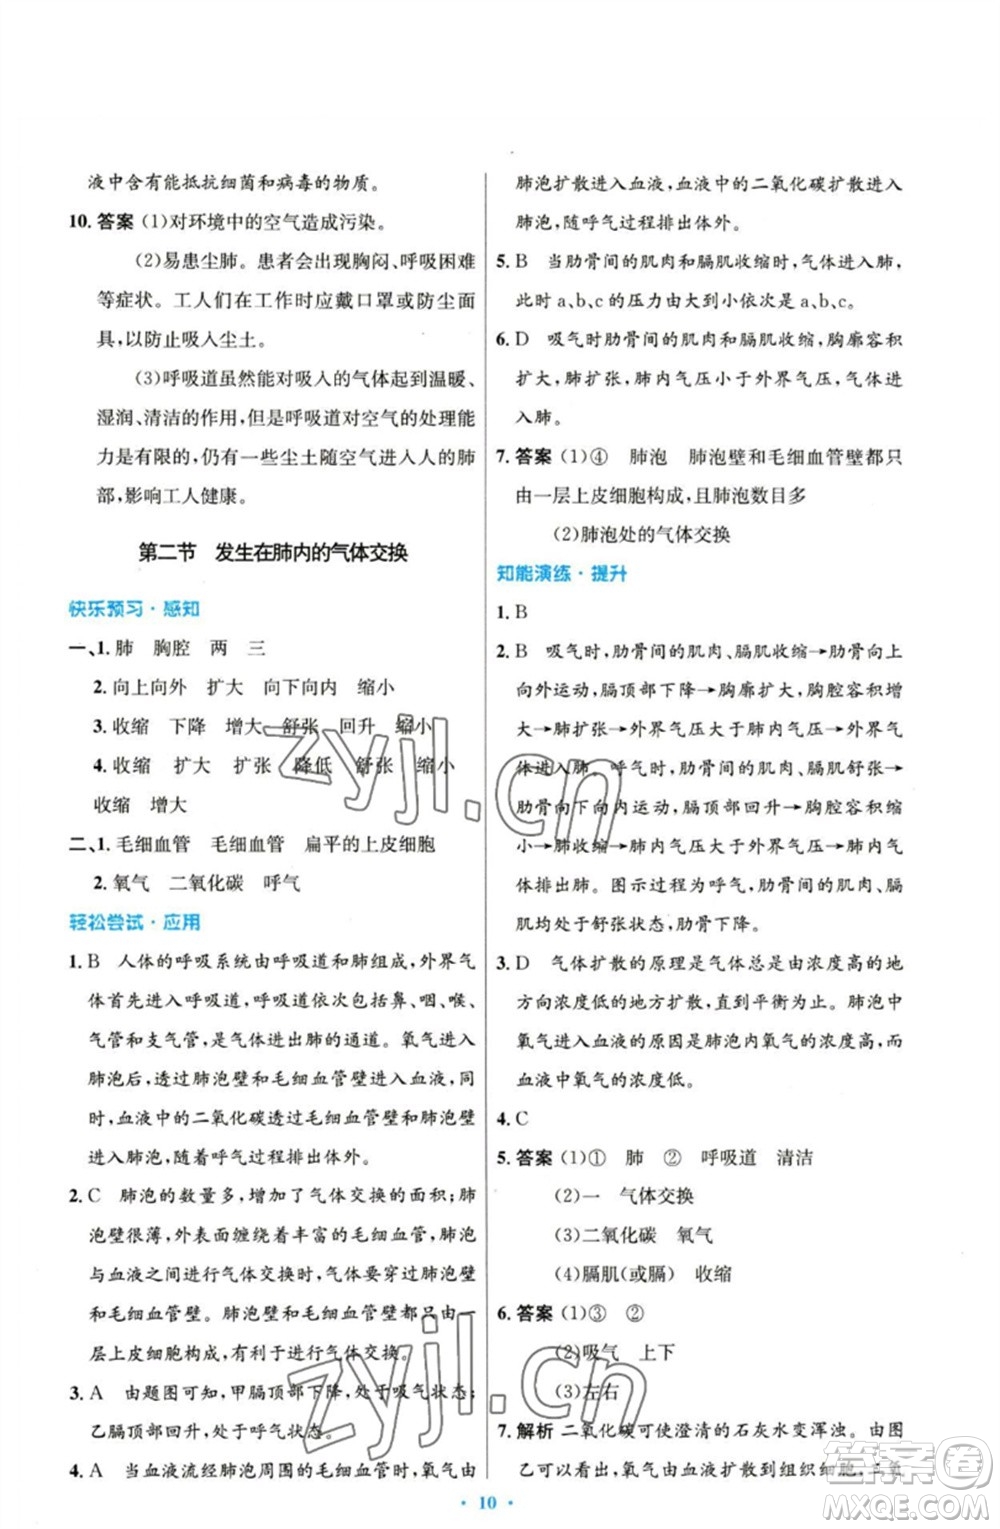 液中含有能抵抗细菌和病毒的物质。
10. 答案 (1)对环境中的空气造成污染。
(2)易患尘肺。患者会出现胸闷、呼吸困难
等症状。工人们在工作时应戴口罩或防尘面
具,以防止吸入尘土。
(3)呼吸道虽然能对吸入的气体起到温暖、
湿润、清洁的作用,但是呼吸道对空气的处理能
力是有限的,仍有一些尘土随空气进入人的肺
部,影响工人健康。
第二节 发生在肺内的气体交换
快乐预习·感知
一、1. 肺 胸腔 两 三
2. 向上向外 扩大 向下向内 缩小
3. 收缩 下降 增大 舒张 回升 缩小
4. 收缩 扩大 扩张 降低 舒张 缩小
收缩 增大
二、1. 毛细血管 毛细血管 扁平的上皮细胞
2. 氧气 二氧化碳 呼气
轻松尝试·应用
1. B 人体的呼吸系统由呼吸道和肺组成,外界气
体首先进入呼吸道,呼吸道依次包括鼻、咽、喉、
气管和支气管,是气体进出肺的通道。氧气进入
肺泡后,透过肺泡壁和毛细血管壁进入血液,同
时,血液中的二氧化碳透过毛细血管壁和肺泡壁
进入肺泡,随着呼气过程排出体外。
2. C 肺泡的数量多,增加了气体交换的面积;肺
泡壁很薄,外表面缠绕着丰富的毛细血管,肺泡
与血液之间进行气体交换时,气体要穿过肺泡壁
和毛细血管壁。肺泡壁和毛细血管壁都只由一
层上皮细胞构成,有利于进行气体交换。
3. A 由题图可知,甲膈顶部下降,处于吸气状态;
乙膈顶部回升,处于呼气状态。
4. A 当血液流经肺泡周围的毛细血管时,氧气由
肺泡扩散进入血液,血液中的二氧化碳扩散进入
肺泡,随呼气过程排出体外。
5. B 当肋骨间的肌肉和膈肌收缩时,气体进入肺,
此时 a、b、c 的压力由大到小依次是 a、b、c。
6. D 吸气时肋骨间的肌肉和膈肌收缩,胸廓容积
扩大,肺扩张,肺内气压小于外界气压,气体进
入肺。
7. 答案 (1)④ 肺泡 肺泡壁和毛细血管壁都只
由一层上皮细胞构成,且肺泡数目多
(2)肺泡处的气体交换
知能演练·提升
1. B
2. B 吸气时,肋骨间的肌肉、膈肌收缩→肋骨向上
向外运动,膈顶部下降→胸廓扩大,胸腔容积增
大→肺扩张→外界气压大于肺内气压→外界气
体进入肺。呼气时,肋骨间的肌肉、膈肌舒张→
肋骨向下向内运动,膈顶部回升→胸腔容积缩
小→肺收缩→外界气压小于肺内气压→肺内气
体排出肺。图示过程为呼气,肋骨间的肌肉、膈
肌均处于舒张状态,肋骨下降。
3. D 气体扩散的原理是气体总是由浓度高的地
方向浓度低的地方扩散,直到平衡为止。肺泡中
氧气进入血液的原因是肺泡内氧气的浓度高,而
血液中氧气的浓度低。
4. C
5. 答案 (1)① 肺 ② 呼吸道 清洁
(2)一 气体交换
(3)二氧化碳 氧气
(4)膈肌(或膈) 收缩
6. 答案 (1)③ ②
(2)吸气 上下
(3)左右
7. 解析 二氧化碳可使澄清的石灰水变浑浊。由图
乙可以看出,氧气由血液扩散到组织细胞,二氧
· 10 ·
zyjl.cn
zyjl.cn
答案圈
MXQE.COM